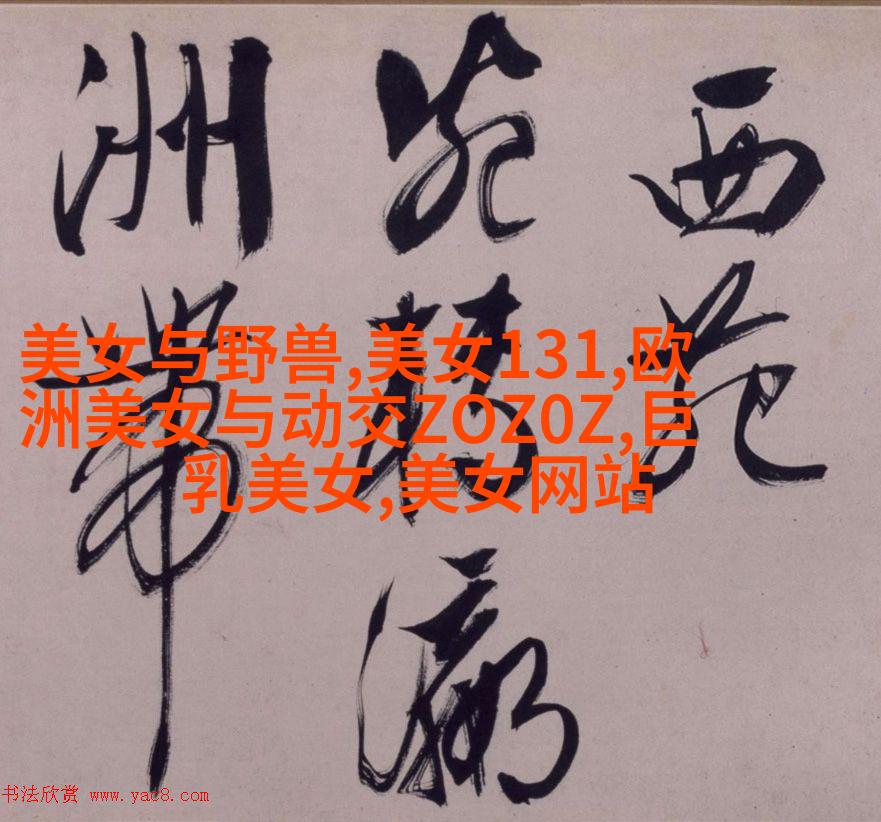 西苑
瀛
洲
美女与野兽,美女131,欧
洲美女与动交ZOZ0Z,巨
乳美女,美女网站
书法欣赏 www.yac8.com